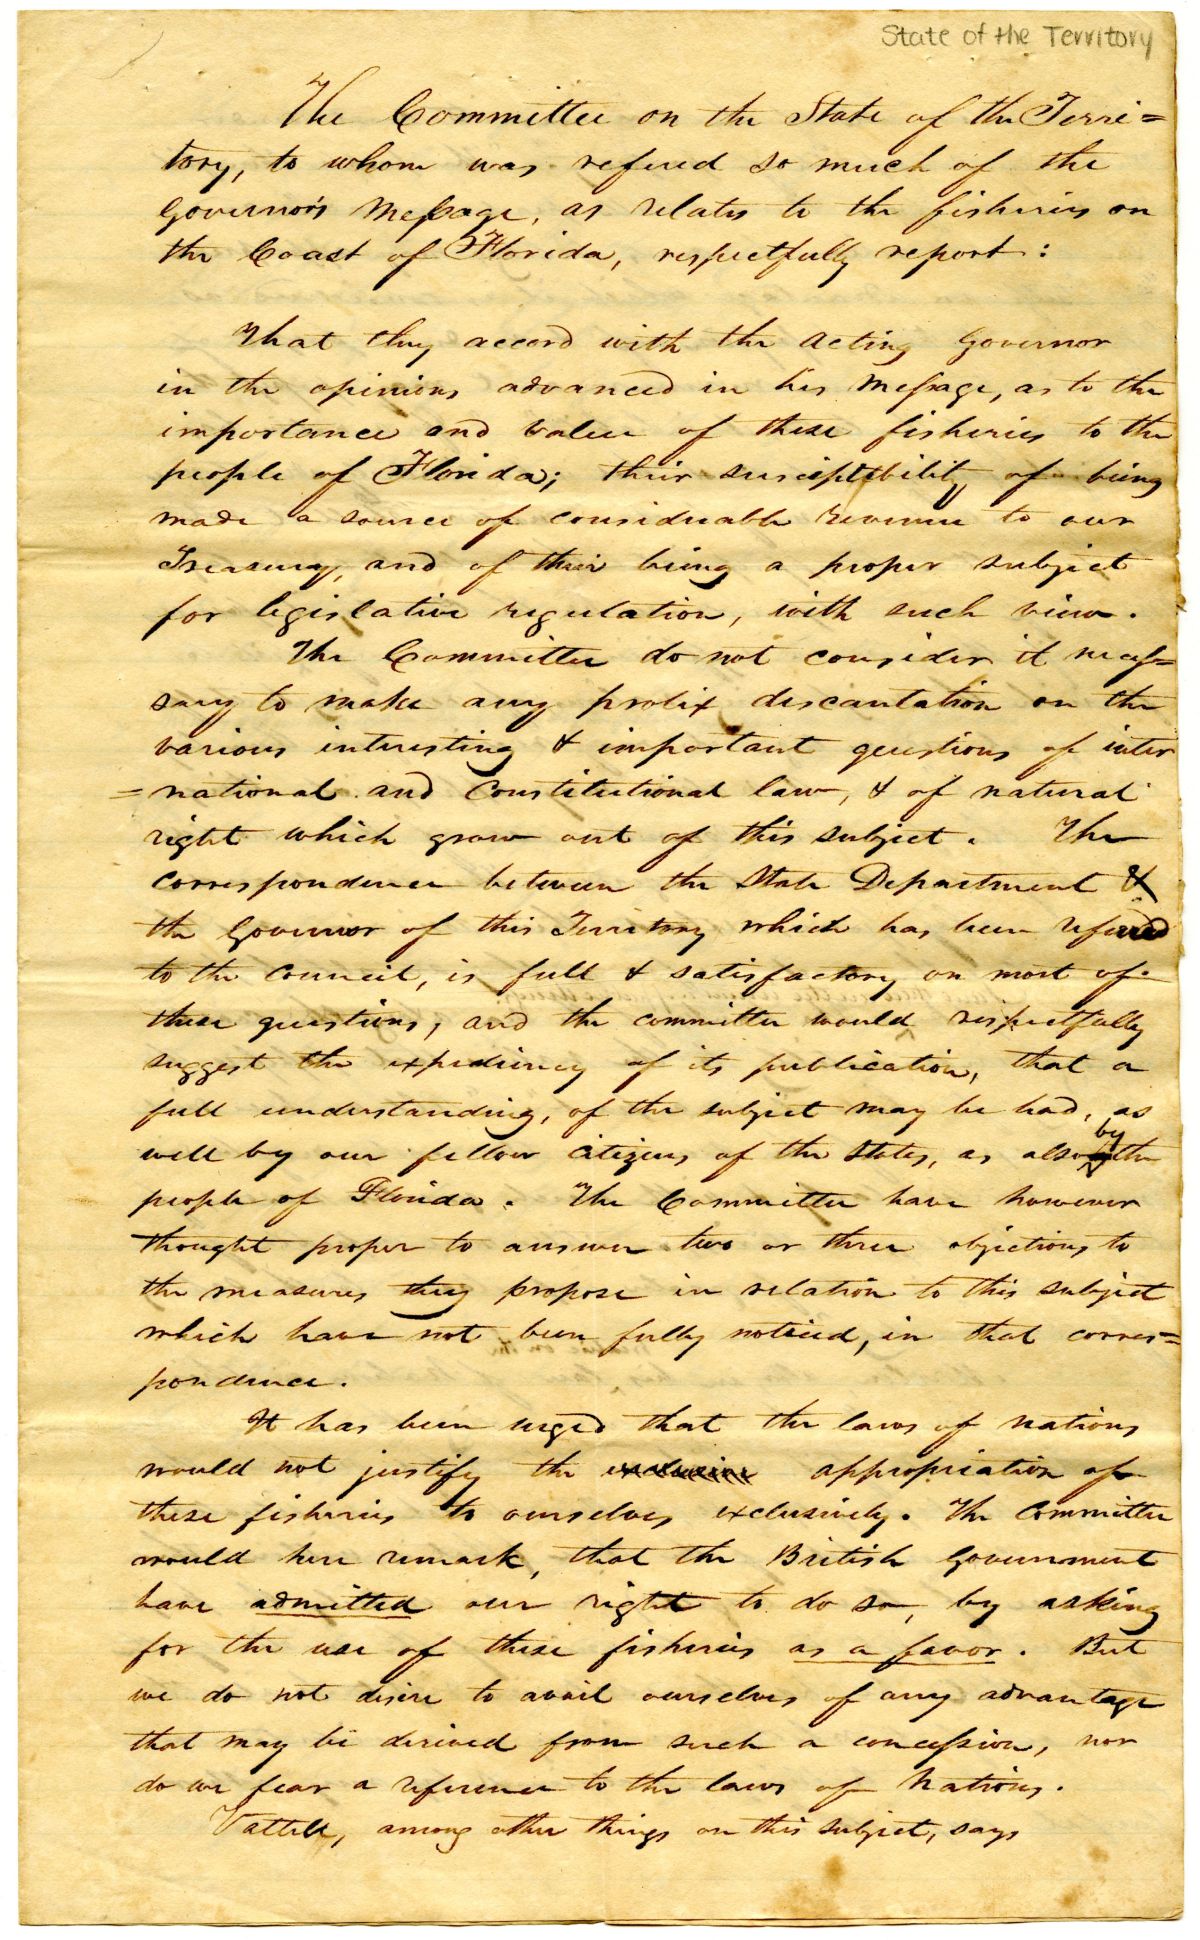 State of the Territory
The Committee on the State of the Terri=
tory, to whom was refered so much of the
Governor's Message, as relates to the fisheries on
the Coast of Florida, respectfully report:
That they accord with the acting Governor
in the opinions advanced in his Message, as to the
importance and value of these fisheries to the
people of Florida; their susceptibility of being
made a source of considerable revenue to our
Treasury, and of their being a proper subject
for legislative regulation, with such view.
The Committee do not consider it neces=
sary to make any prolix descantation on the
various interesting & important questions of inter
=national and Constitutional law, & of natural
right which grow out of this subject. The
correspondence between the State Department &
the Governor of this Territory which has been refered
to the Council, is full & satisfactory on most of
these questions, and the committee would respectfully
suggest the expediency of its publication, that a
full understanding, of the subject may be had, as
well by our fellow citizens of the States, as also by the
people of Florida. The Committee have however
thought proper to answer two or three objections to
the measures they propose in relation to this subject
which have not been fully noticed, in that corres=
pondence.
It has been urged that the laws of nations
would not justify the exclusive appropriation of
these fisheries to ourselves exclusively. The Committee
would here remark, that the British Government
have admitted our right to do so, by asking
for the use of these fisheries as a favor. But
we do not desire to avail ourselves of any advantage
that may be derived from such a concession, nor
do we fear a reference to the laws of Nations.
Vattell, among other things on this subject, says